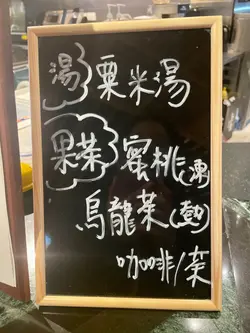 湯 粟米湯
果茶 蜜桃(凍)
烏龍茶(熱)
咖啡/茶